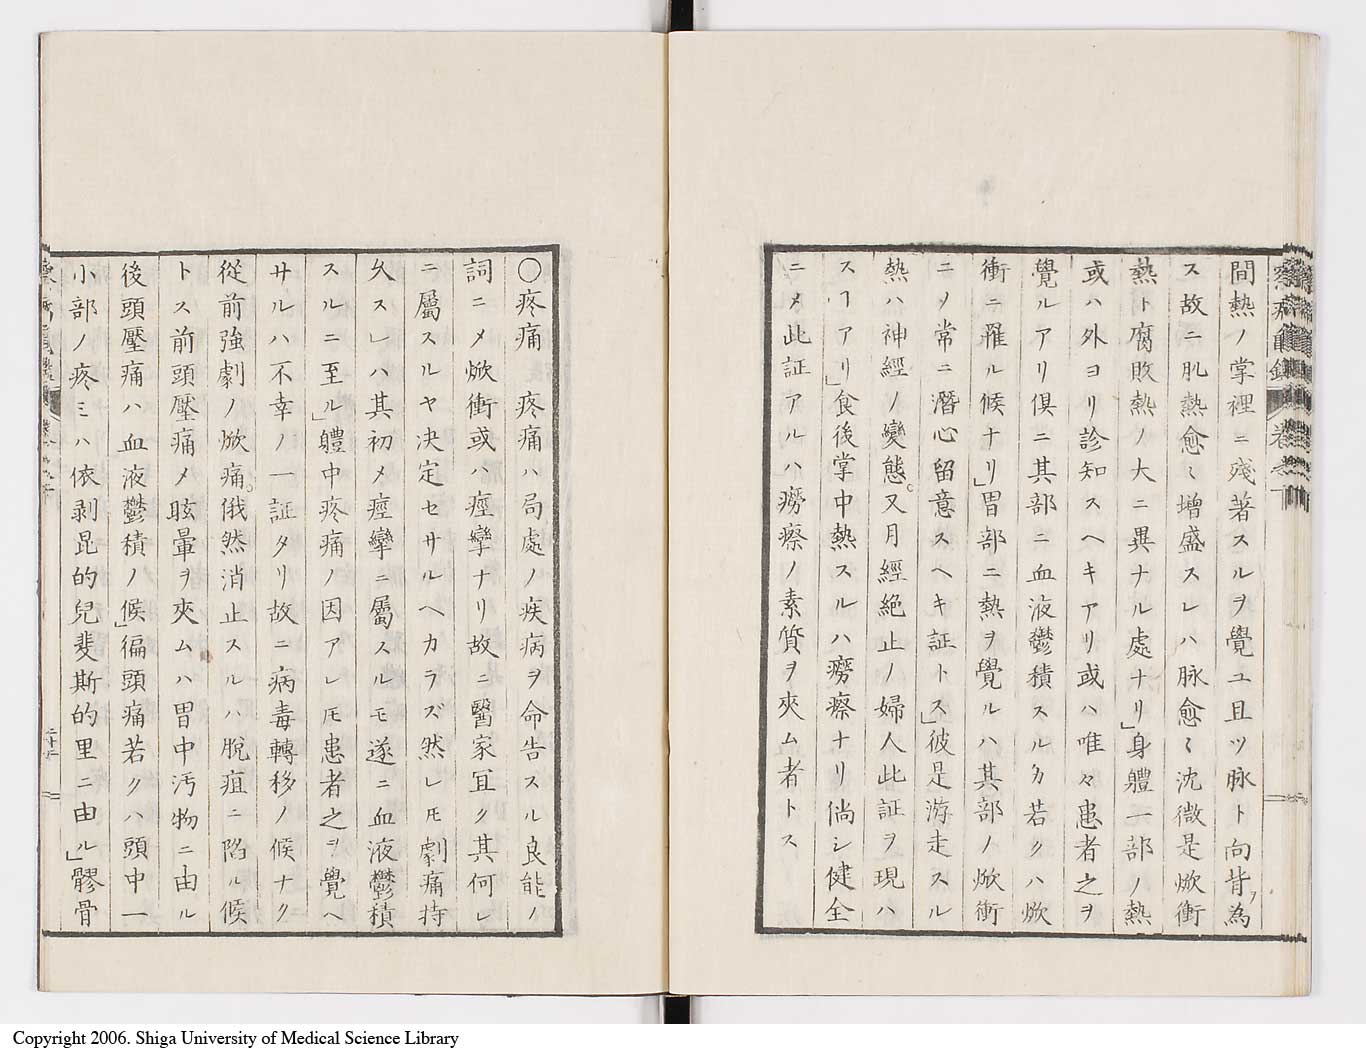 間熱ノ掌裡ニ殘著スルヲ覺ユ且ツ脉ト向背ヲ為
ス故ニ肌熱愈〻增盛スレハ脉愈〻沈微是焮衝
熱ト腐敗熱ノ大ニ異ナル處ナリ」身軆一部ノ熱
或ハ外ヨリ診知スヘキアリ或ハ唯々患者之ヲ
覺ルアリ俱ニ其部ニ血液鬱積スルカ若クハ焮
衝ニ罹ル候ナリ」胃部ニ熱ヲ覺ルハ其部ノ焮衝
ニ〆常ニ潛心留意スヘキ証トス」彼是游走スル
熱ハ神經ノ變態。又月經絶止ノ婦人此証ヲ現ハ
スヿアリ」食後掌中熱スルハ癆瘵ナリ倘シ健全
ニ〆此証アルハ癆瘵ノ素質ヲ夾ム者トス
〇疼痛 疼痛ハ局處ノ疾病ヲ命告スル良能ノ
詞ニ〆焮衝或ハ痙攣ナリ故ニ醫家宜ク其何レ
ニ屬スルヤ決定セサルヘカラズ然レ𪜈劇痛持
久スレハ其初メ痙攣ニ屬スルモ遂ニ血液鬱積
スルニ至ル」軆中疼痛ノ因アレ𪜈患者之ヲ覺ヘ
サルハ不幸ノ一証タリ故ニ病毒轉移ノ候ナク
從前強劇ノ焮痛。俄然消止スルハ脫疽ニ陷ル候
トス前頭壓痛〆眩暈ヲ夾ムハ胃中汚物ニ由ル
後頭壓痛ハ血液鬱積ノ候」偏頭痛若クハ頭中一
小部ノ疼ミハ依剥昆的兒斐斯的里ニ由ル」髎骨
二十二
Copyright 2006. Shiga University of Medical Science Library